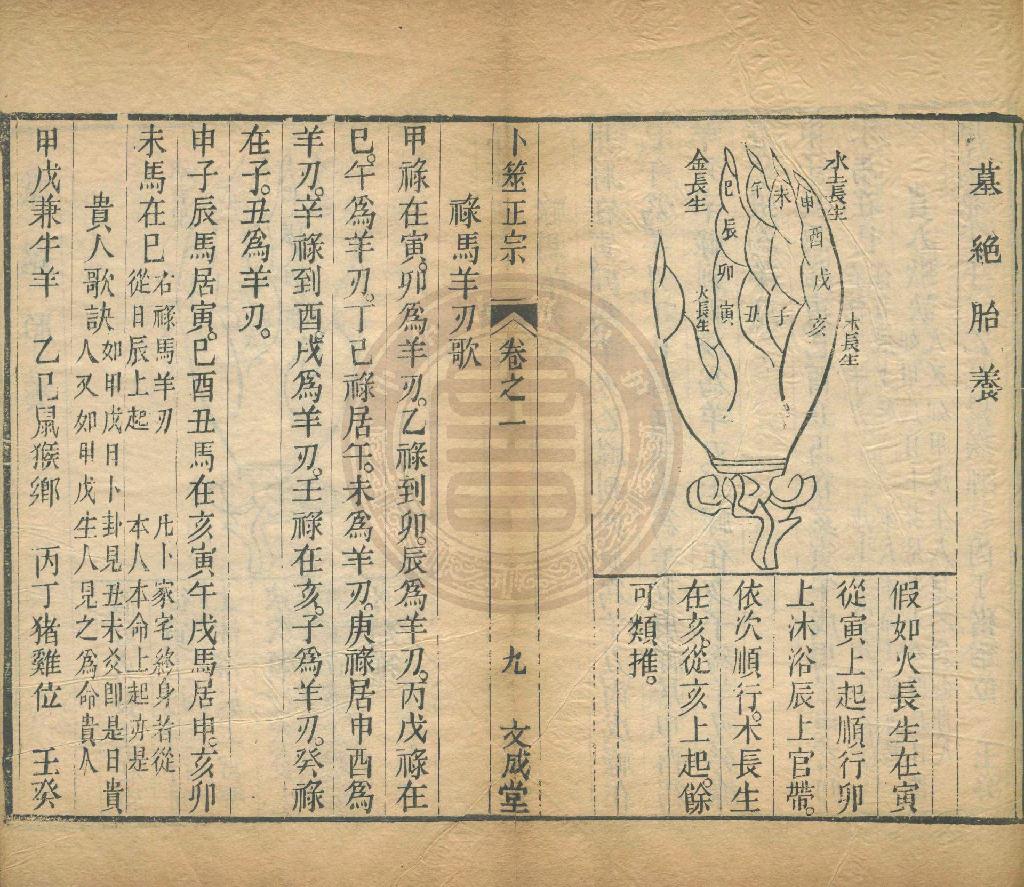 墓絶胎養
水土長生
木長生
金長生
火長生
巳
午
未
申
酉
戌
亥
子
丑
寅
卯
辰
假如火長生在寅
從寅上起順行卯
上沐浴辰上官帶。
依次順行。木長生
在亥。從亥上起。餘
可類推。
卜筮正宗 卷之一 九 文成堂
祿馬羊刃歌
甲祿在寅。卯爲羊刃。乙祿到卯。辰爲羊刃。丙戊祿在
巳。午爲羊刃。丁己祿居午。未爲羊刃。庚祿居申酉爲
羊刃。辛祿到酉。戌爲羊刃。壬祿在亥。子爲羊刃。癸祿
在子。丑爲羊刃。
申子辰馬居寅。巳酉丑馬在亥寅午戌馬居申。亥卯
未馬在巳 右祿馬羊刃 凡卜家宅終身者從
從日辰上起 本人本命上起亦是
貴人歌訣 如甲戊日卜卦見丑未爻即是日貴
人又如甲戊生人見之爲命貴人
甲戊兼牛羊 乙己鼠猴鄉 丙丁猪雞位 壬癸